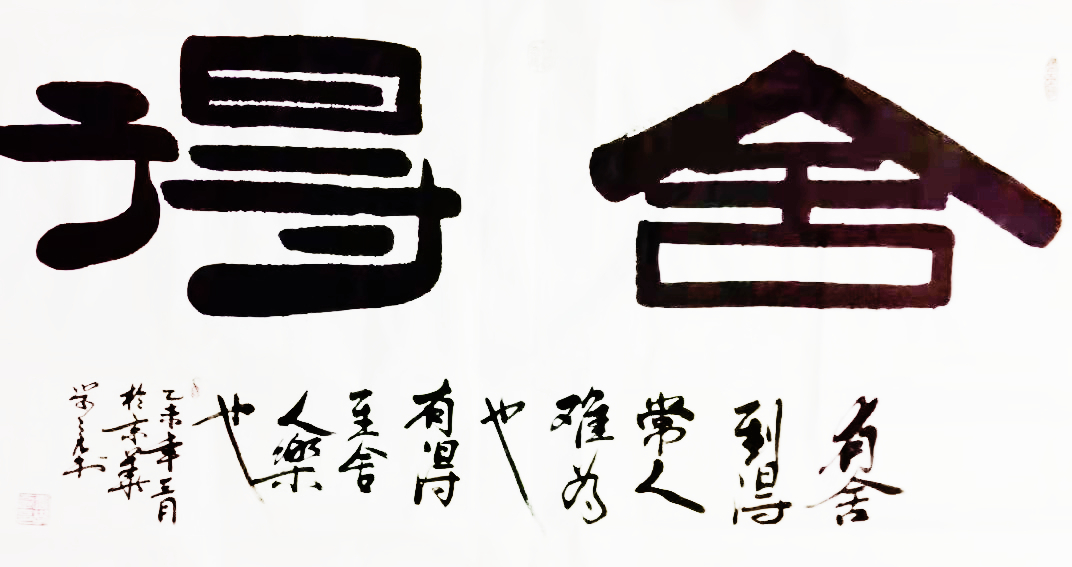 舍得
有舍
到得
常人
难为
也
有得
至舍
人樂
也
乙未年三月
於京華